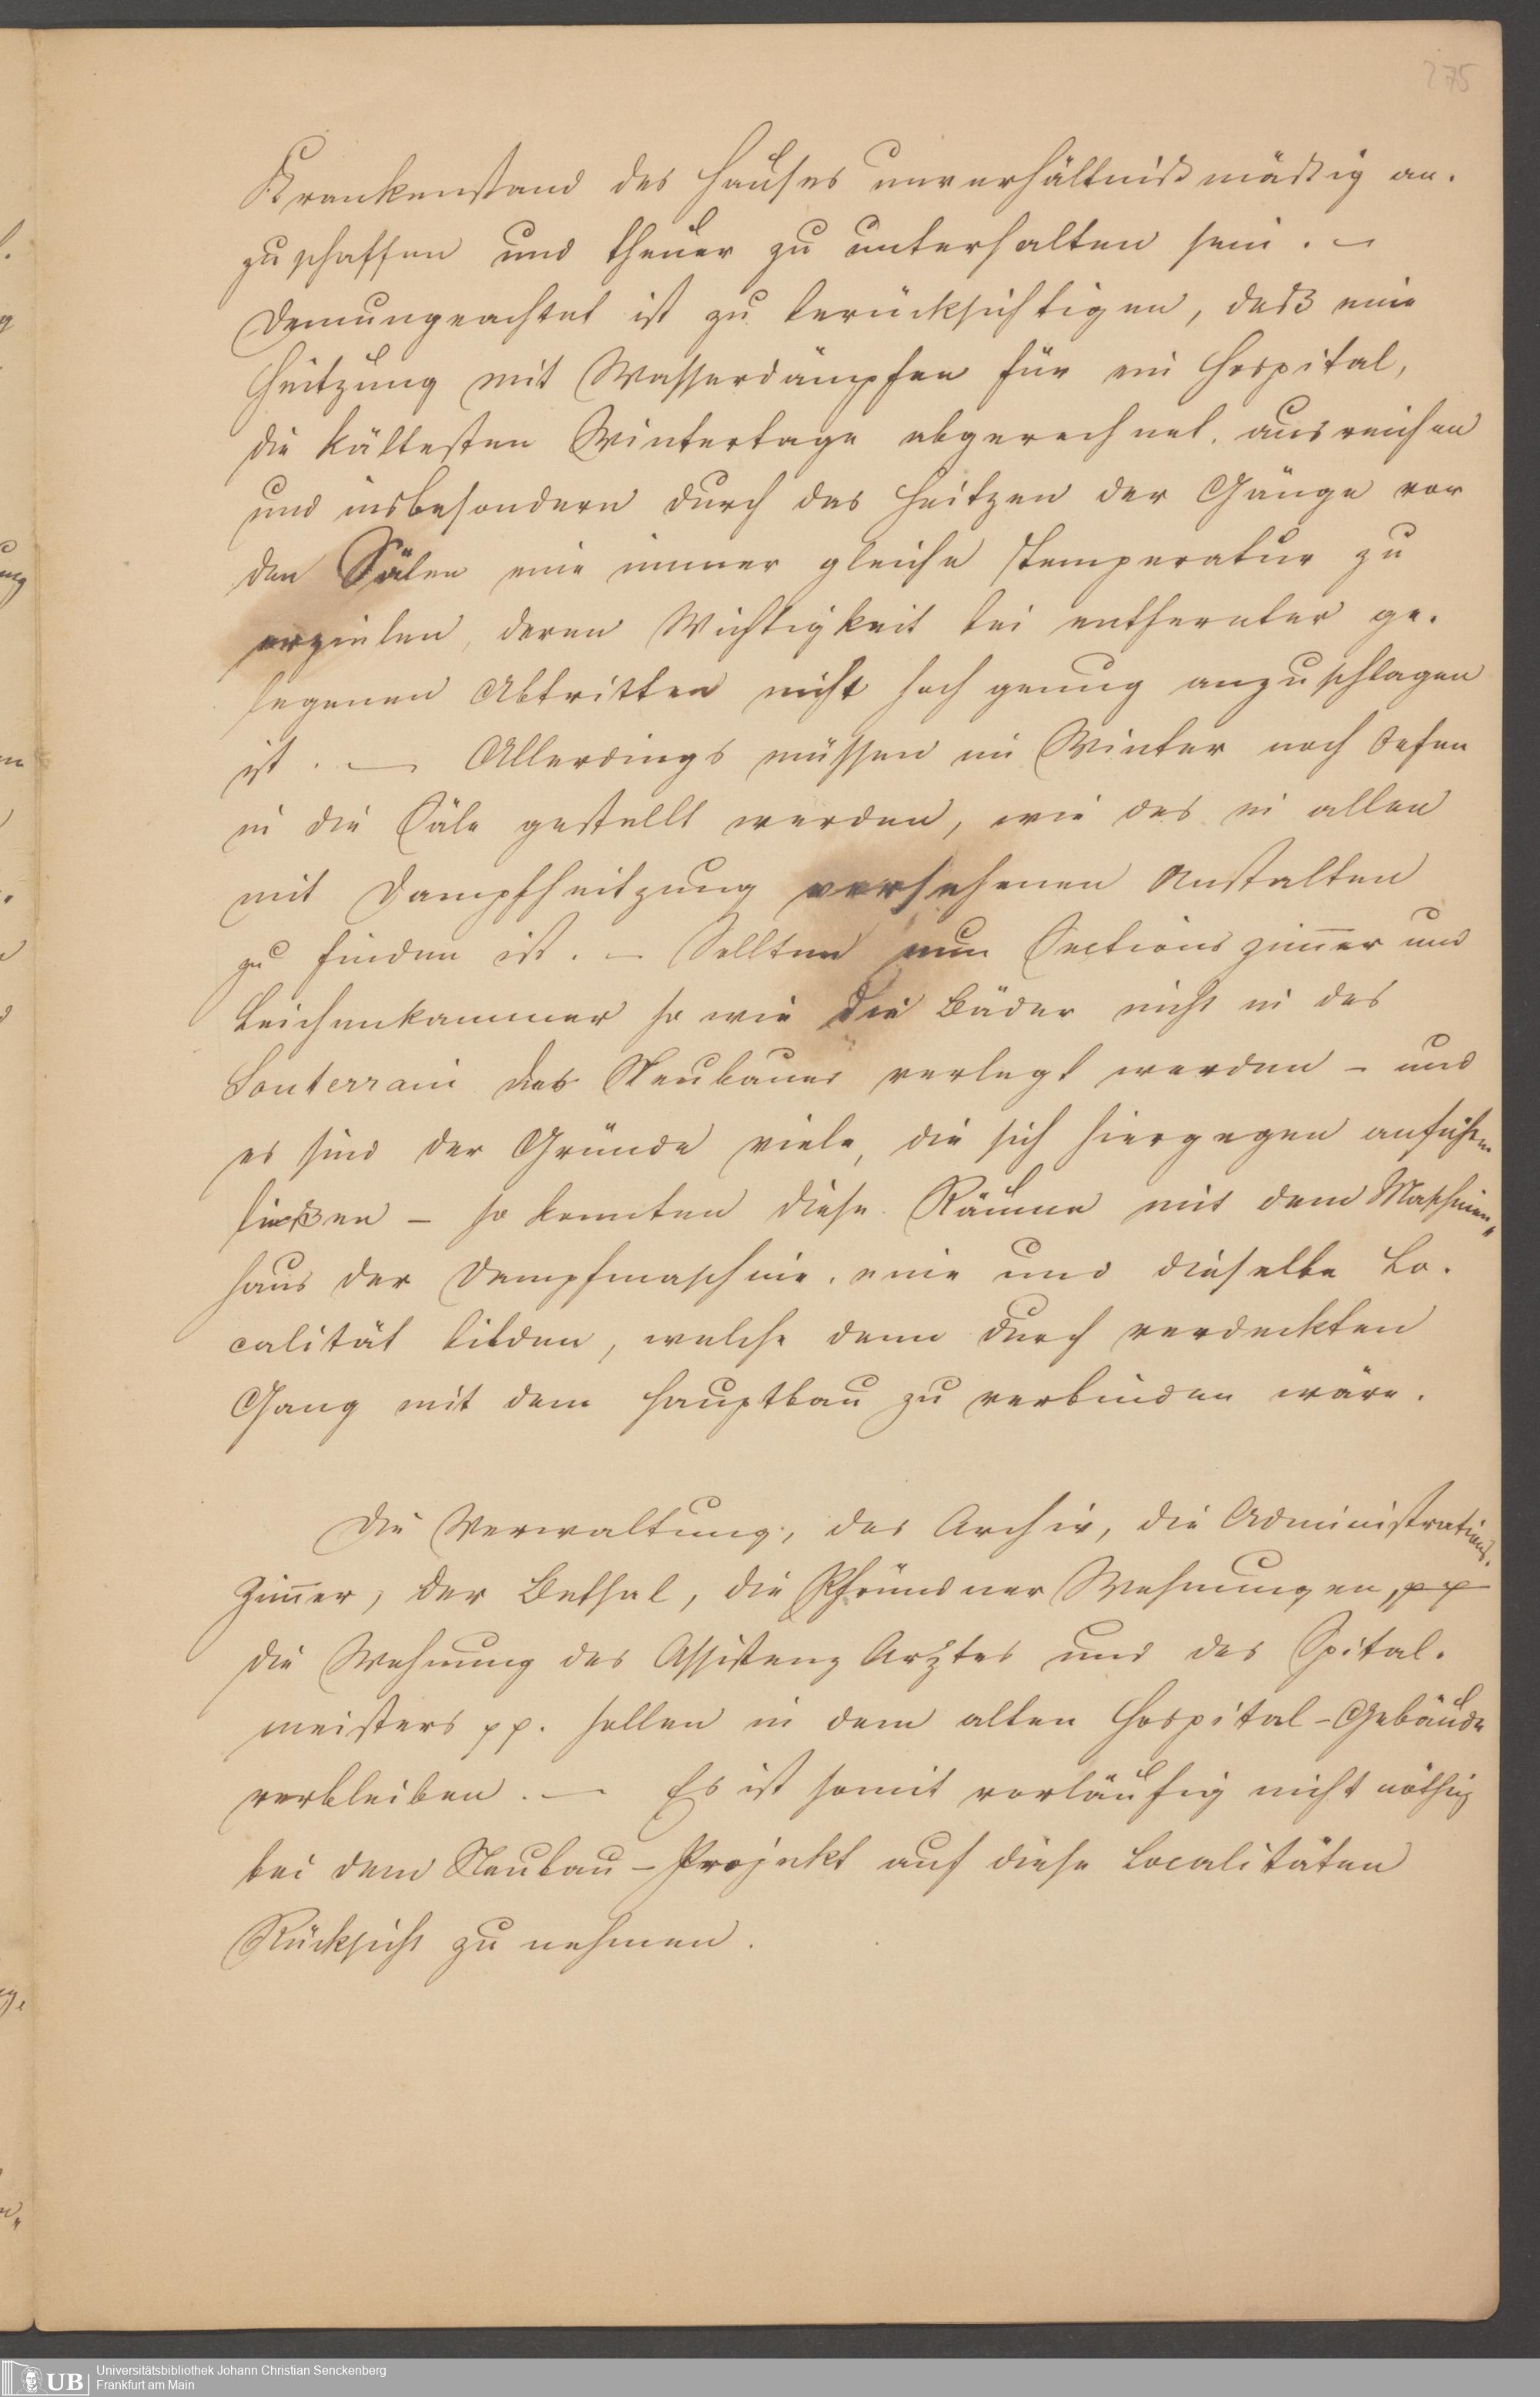 275
Krankenstand des Hauses unverhältnißmäßig an-
zuschaffen und theuer zu unterhalten sein. –
Demungeachtet ist zu berücksichtigen, daß eine
Heitzung mit Wasserdämpfen für ein Hospital,
die kältesten Wintertage abgerechnet, ausreichen
und insbesondern durch das Heitzen der Gänge vor
den Sälen eine immer gleiche Temperatur zu
erzielen, deren Wichtigkeit bei entfernter ge-
legenen Abtritten nicht hoch genug anzuschlagen
ist. — Allerdings müssen im Winter noch Oefen
in die Säle gestellt werden, wie das in allen
mit Dampfheitzung versehenen Anstalten
zu finden ist. – Sollten nun Sectionszim̄er und
Leichenkammer so wie die Bäder nicht in das
Souterrain des Neubaues verlegt werden – und
es sind der Gründe viele, die sich hiergegen anführen
ließen – so konnten diese Räume mit dem Maschinen„
haus der Dampfmaschine, eine und dieselbe Lo-
calität bilden, welche dann durch verdeckten
Gang mit dem Hauptbau zu verbinden wäre.
Die Verwaltung, das Archiv, die Administrations-
Zim̄er, der Betsal, die Pfründner Wohnungen, pp
die Wohnung des Assistenz Arztes und des Spital-
meisters pp. sollen in dem alten Hospital-Gebäude
verbleiben. — Es ist somit vorläufig nicht nöthig
bei dem Neubau-Projekt auf diese Localitäten
Rücksicht zu nehmen.
UB
Universitätsbibliothek Johann Christian Senckenberg
Frankfurt am Main